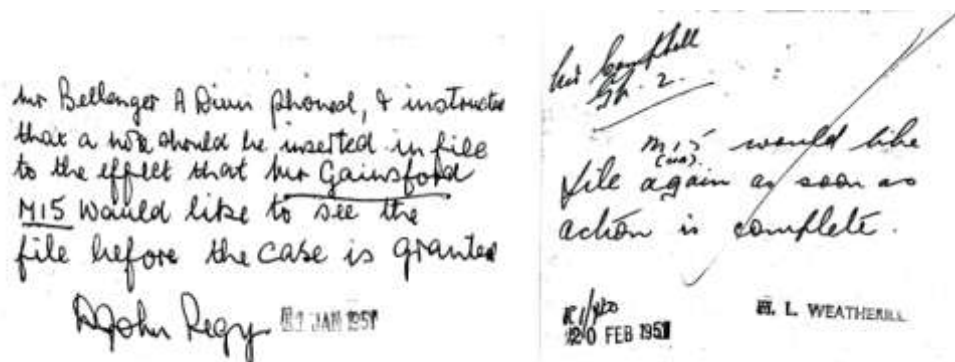 Mr Bellenger A Divn phoned, & instructed
that a note should be inserted in file
to the effect that Mr Gainsford
MI5 would like to see the
file before the case is granted
John Regy
JAN 1951
Mr Campbell
Gp. 2.
MI5 would like
file again as soon as
action is complete.
20 FEB 1951
H. L. WEATHERILL